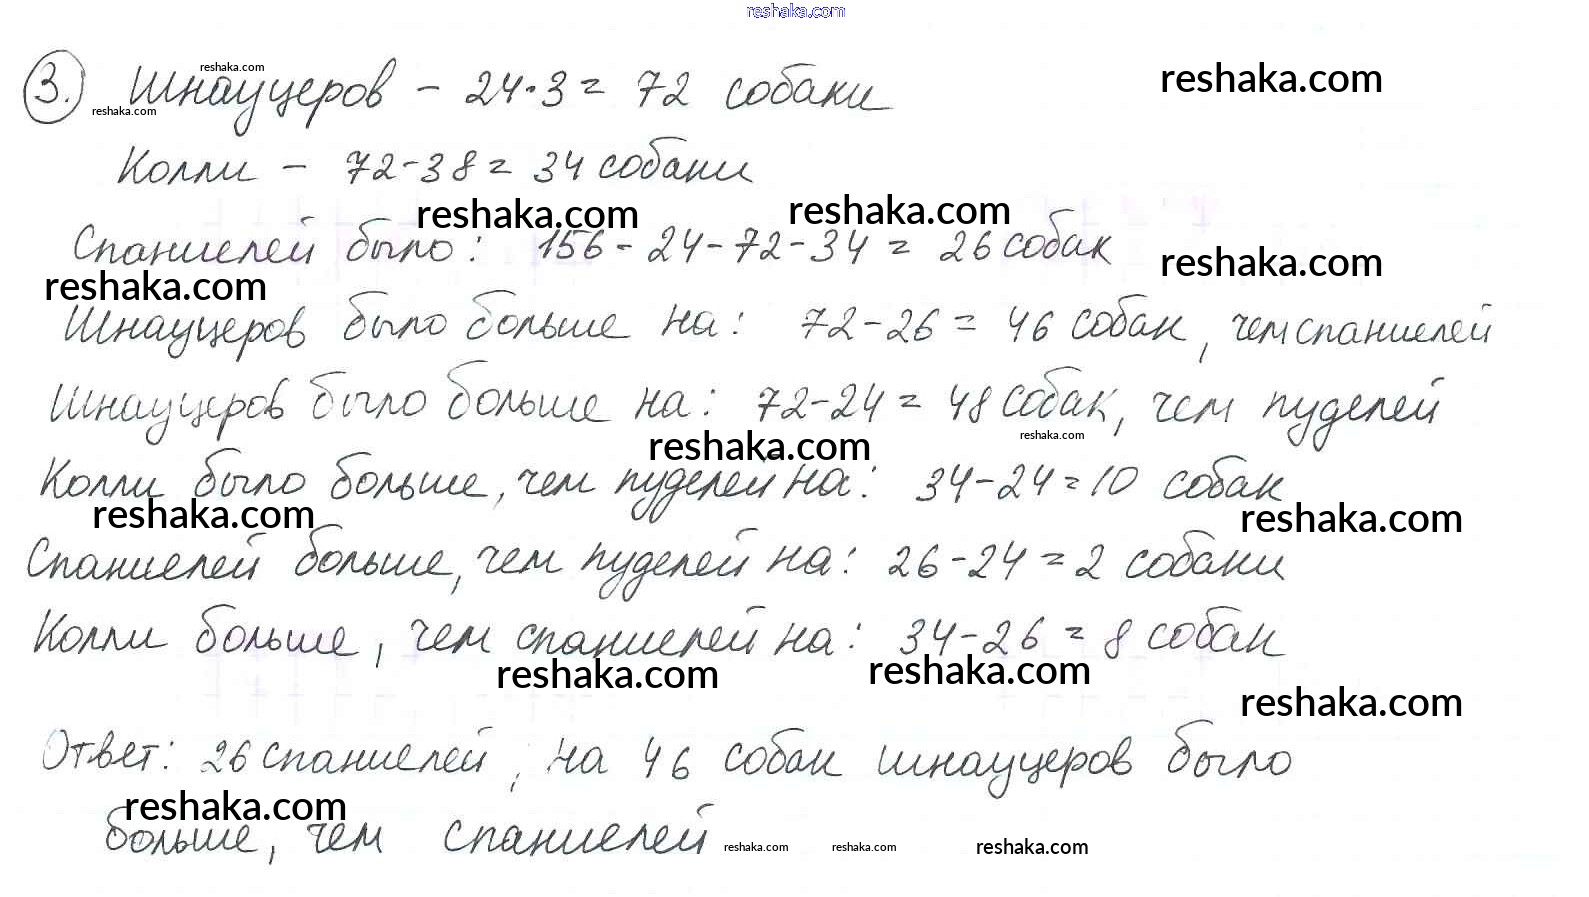 reshaka.com
3. Шнауцеров - 24·3 = 72 собаки
reshaka.com
reshaka.com
reshaka.com
Колли - 72-38 = 34 собаки
reshaka.com reshaka.com
Спаниелей было: 156 - 24 - 72 - 34 = 26 собак
reshaka.com
reshaka.com
Шнауцеров было больше на: 72 - 26 = 46 собак, чем спаниелей
Шнауцеров было больше на: 72 - 24 = 48 собак, чем пуделей
reshaka.com
reshaka.com
Колли было больше, чем пуделей на: 34 - 24 = 10 собак
reshaka.com
reshaka.com
Спаниелей больше, чем пуделей на: 26 - 24 = 2 собаки
Колли больше, чем спаниелей на: 34 - 26 = 8 собак
reshaka.com reshaka.com
reshaka.com
Ответ: 26 спаниелей, на 46 собак шнауцеров было
reshaka.com
больше, чем спаниелей
reshaka.com reshaka.com reshaka.com